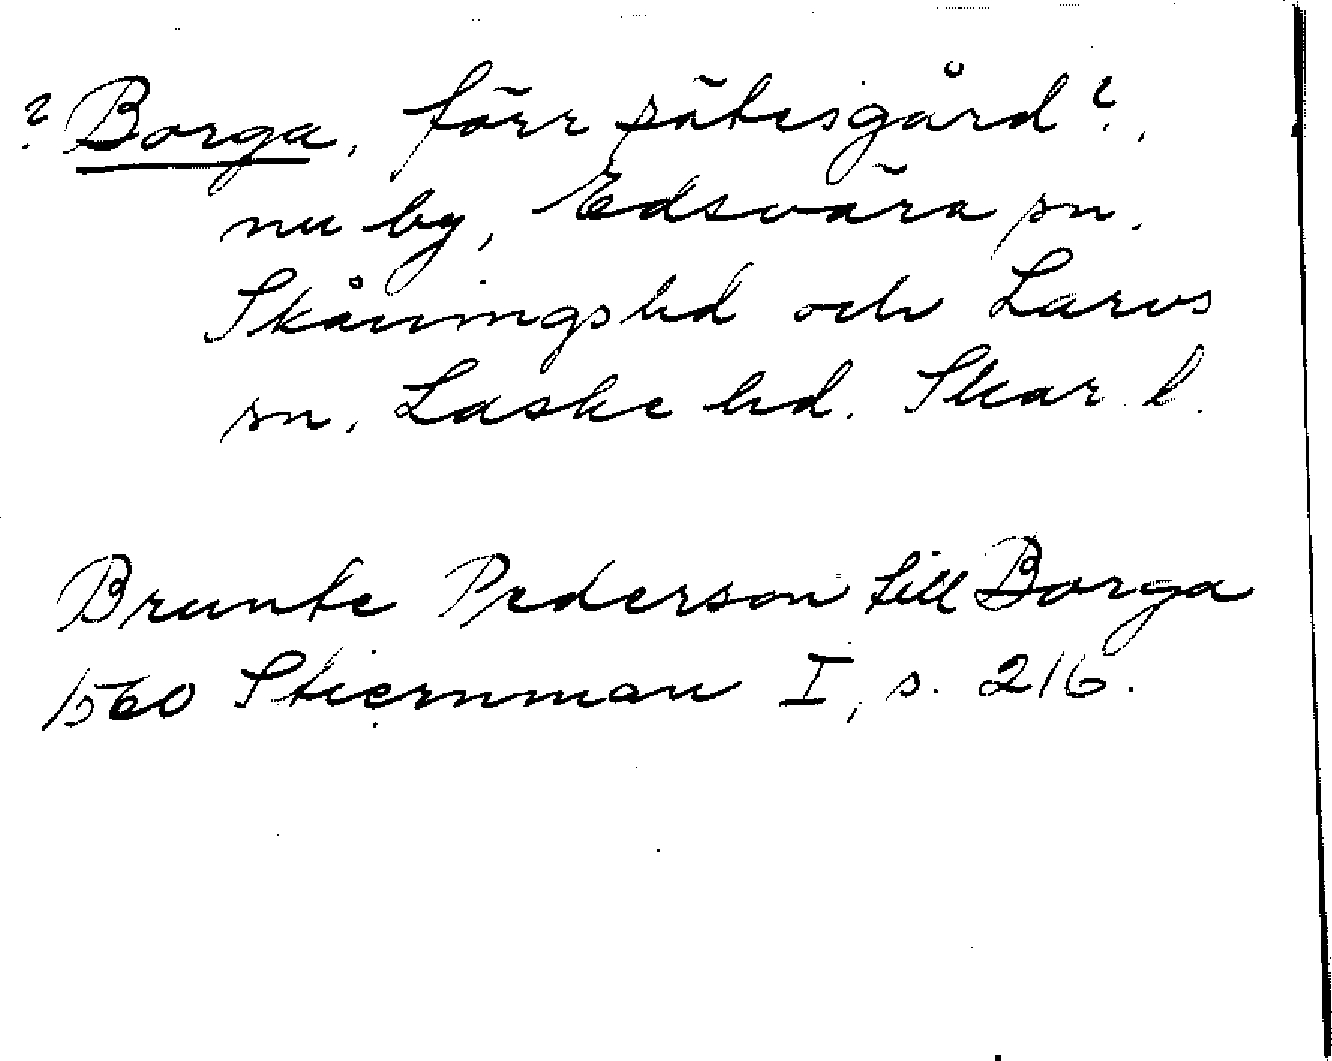 ? Borga, förr sätesgård?,
nu by, Edsvära sn.
Skånings hd och Larvs
sn, Laske hd. Skar. l.
Brunte Pederson till Borga
1560 Stiernman I, s. 216.